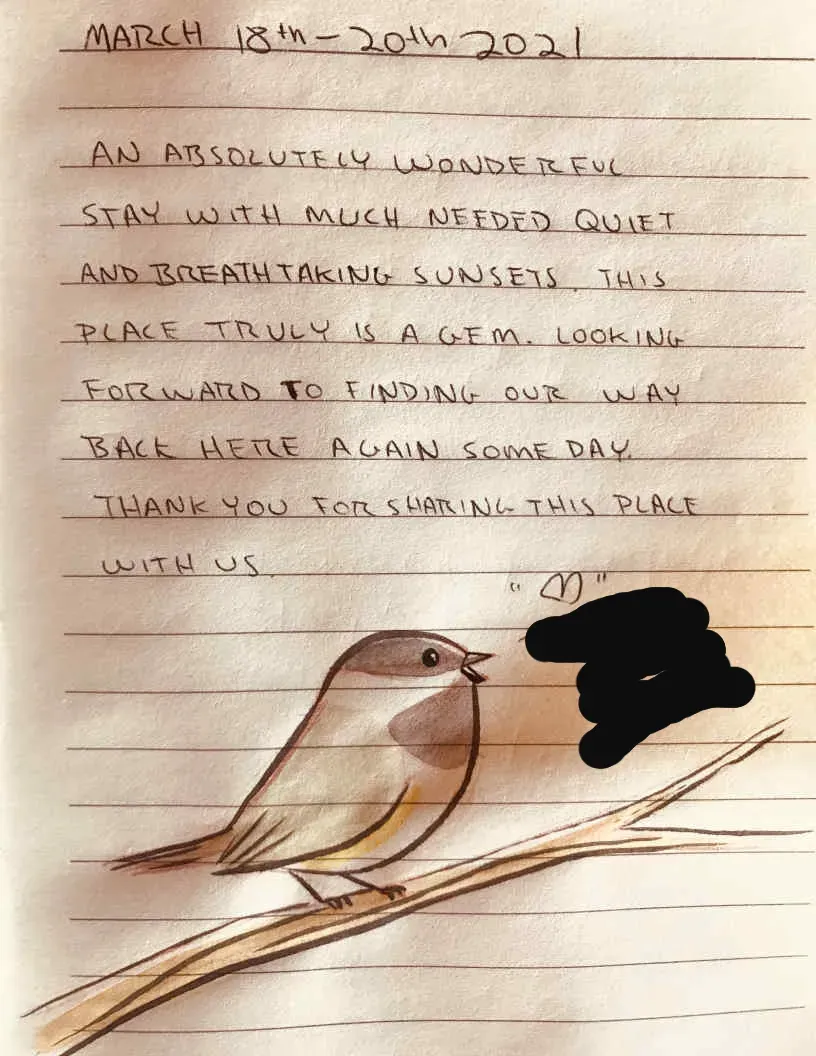 MARCH 18th - 20th 2021
AN ABSOLUTELY WONDERFUL
STAY WITH MUCH NEEDED QUIET
AND BREATHTAKING SUNSETS. THIS
PLACE TRULY IS A GEM. LOOKING
FORWARD TO FINDING OUR WAY
BACK HERE AGAIN SOME DAY.
THANK YOU FOR SHARING THIS PLACE
WITH US.
"♡"